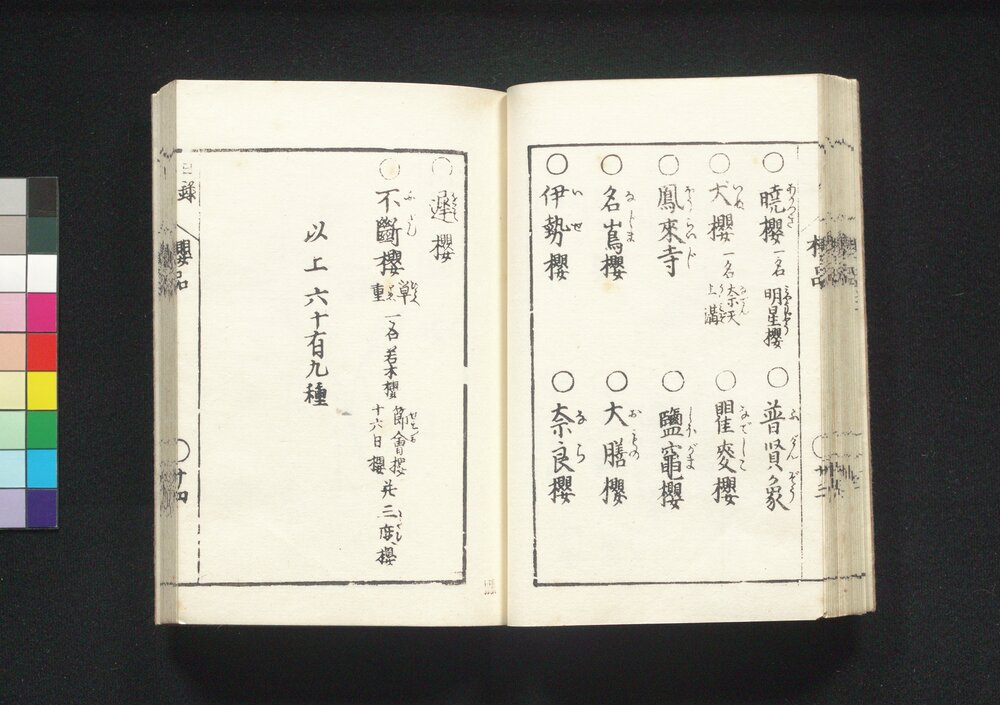 ○曉櫻 一名 明星櫻
○普賢象
○犬櫻 一名 奈天 上溝
○瞿麥櫻
○鳳來寺
○鹽竈櫻
○名嶌櫻
○大膳櫻
○伊勢櫻
○奈良櫻
○遲櫻
○不斷櫻 單 重 一名 若木櫻 節會櫻 十六日櫻 三度櫻
以上六十有九種
目録 櫻品 ○十四